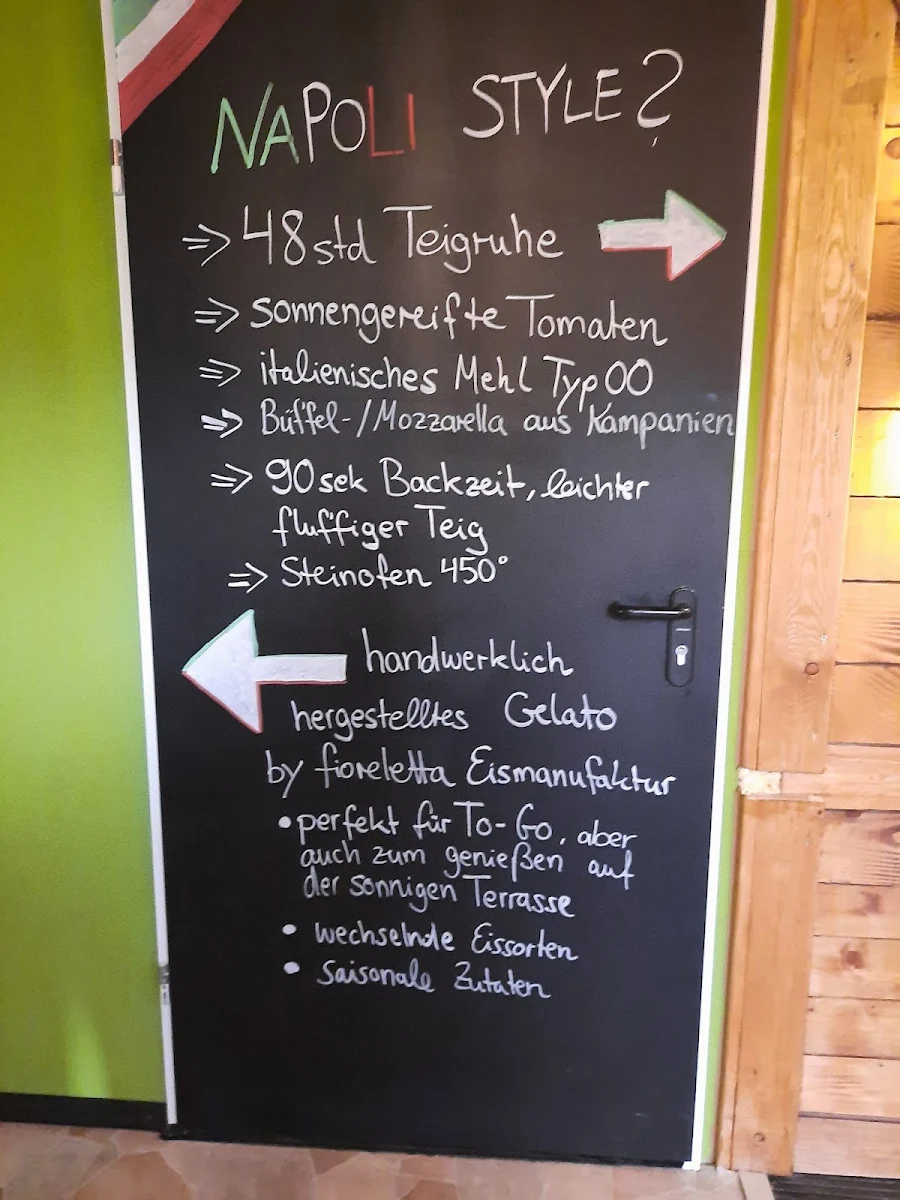 NAPOLI STYLE?
⇒ 48 std Teigruhe
⇒ sonnengereifte Tomaten
⇒ italienisches Mehl Typ 00
⇒ Büffel-/Mozzarella aus Kampanien
⇒ 90 sek Backzeit, leichter
fluffiger Teig
⇒ Steinofen 450°
handwerklich
hergestelltes Gelato
by fioreletta Eismanufaktur
• perfekt für To-Go, aber
auch zum genießen auf
der sonnigen Terrasse
• wechselnde Eissorten
• saisonale Zutaten